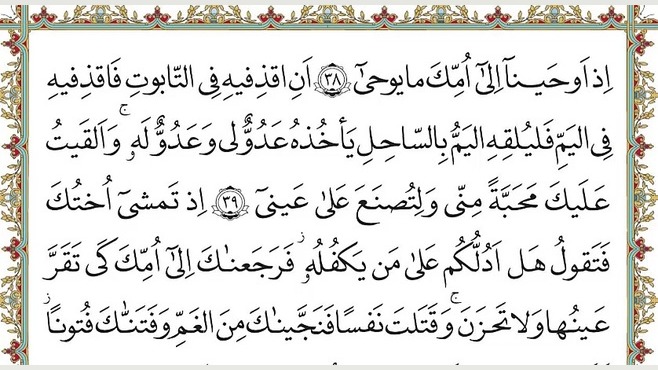 اِذ اَوحَينآ اِلىٰٓ اُمِّكَ مايوحىٰٓ ﴿٣٨﴾ اَنِ اقذِفيهِ فِى التّابوتِ فَاقذِفيهِ
فِى اليَمِّ فَليُلقِهِ اليَمُّ بِالسّاحِلِ يَأخُذهُ عَدُوٌّ لى وَعَدُوٌّ لَهٗ ۚ وَاَلقَيتُ
عَلَيكَ مَحَبَّةً مِنّى وَلِتُصنَعَ عَلىٰ عَينىٓ ﴿٣٩﴾ اِذ تَمشىٓ اُختُكَ
فَتَقولُ هَل اَدُلُّكُم عَلىٰ مَن يَكفُلُهٗ ۖ فَرَجَعنٰكَ اِلىٰٓ اُمِّكَ كَى تَقَرَّ
عَينُها وَلا تَحزَنَ ۚ وَقَتَلتَ نَفسًا فَنَجَّينٰكَ مِنَ الغَمِّ وَفَتَنّٰكَ فُتونًا ۚ